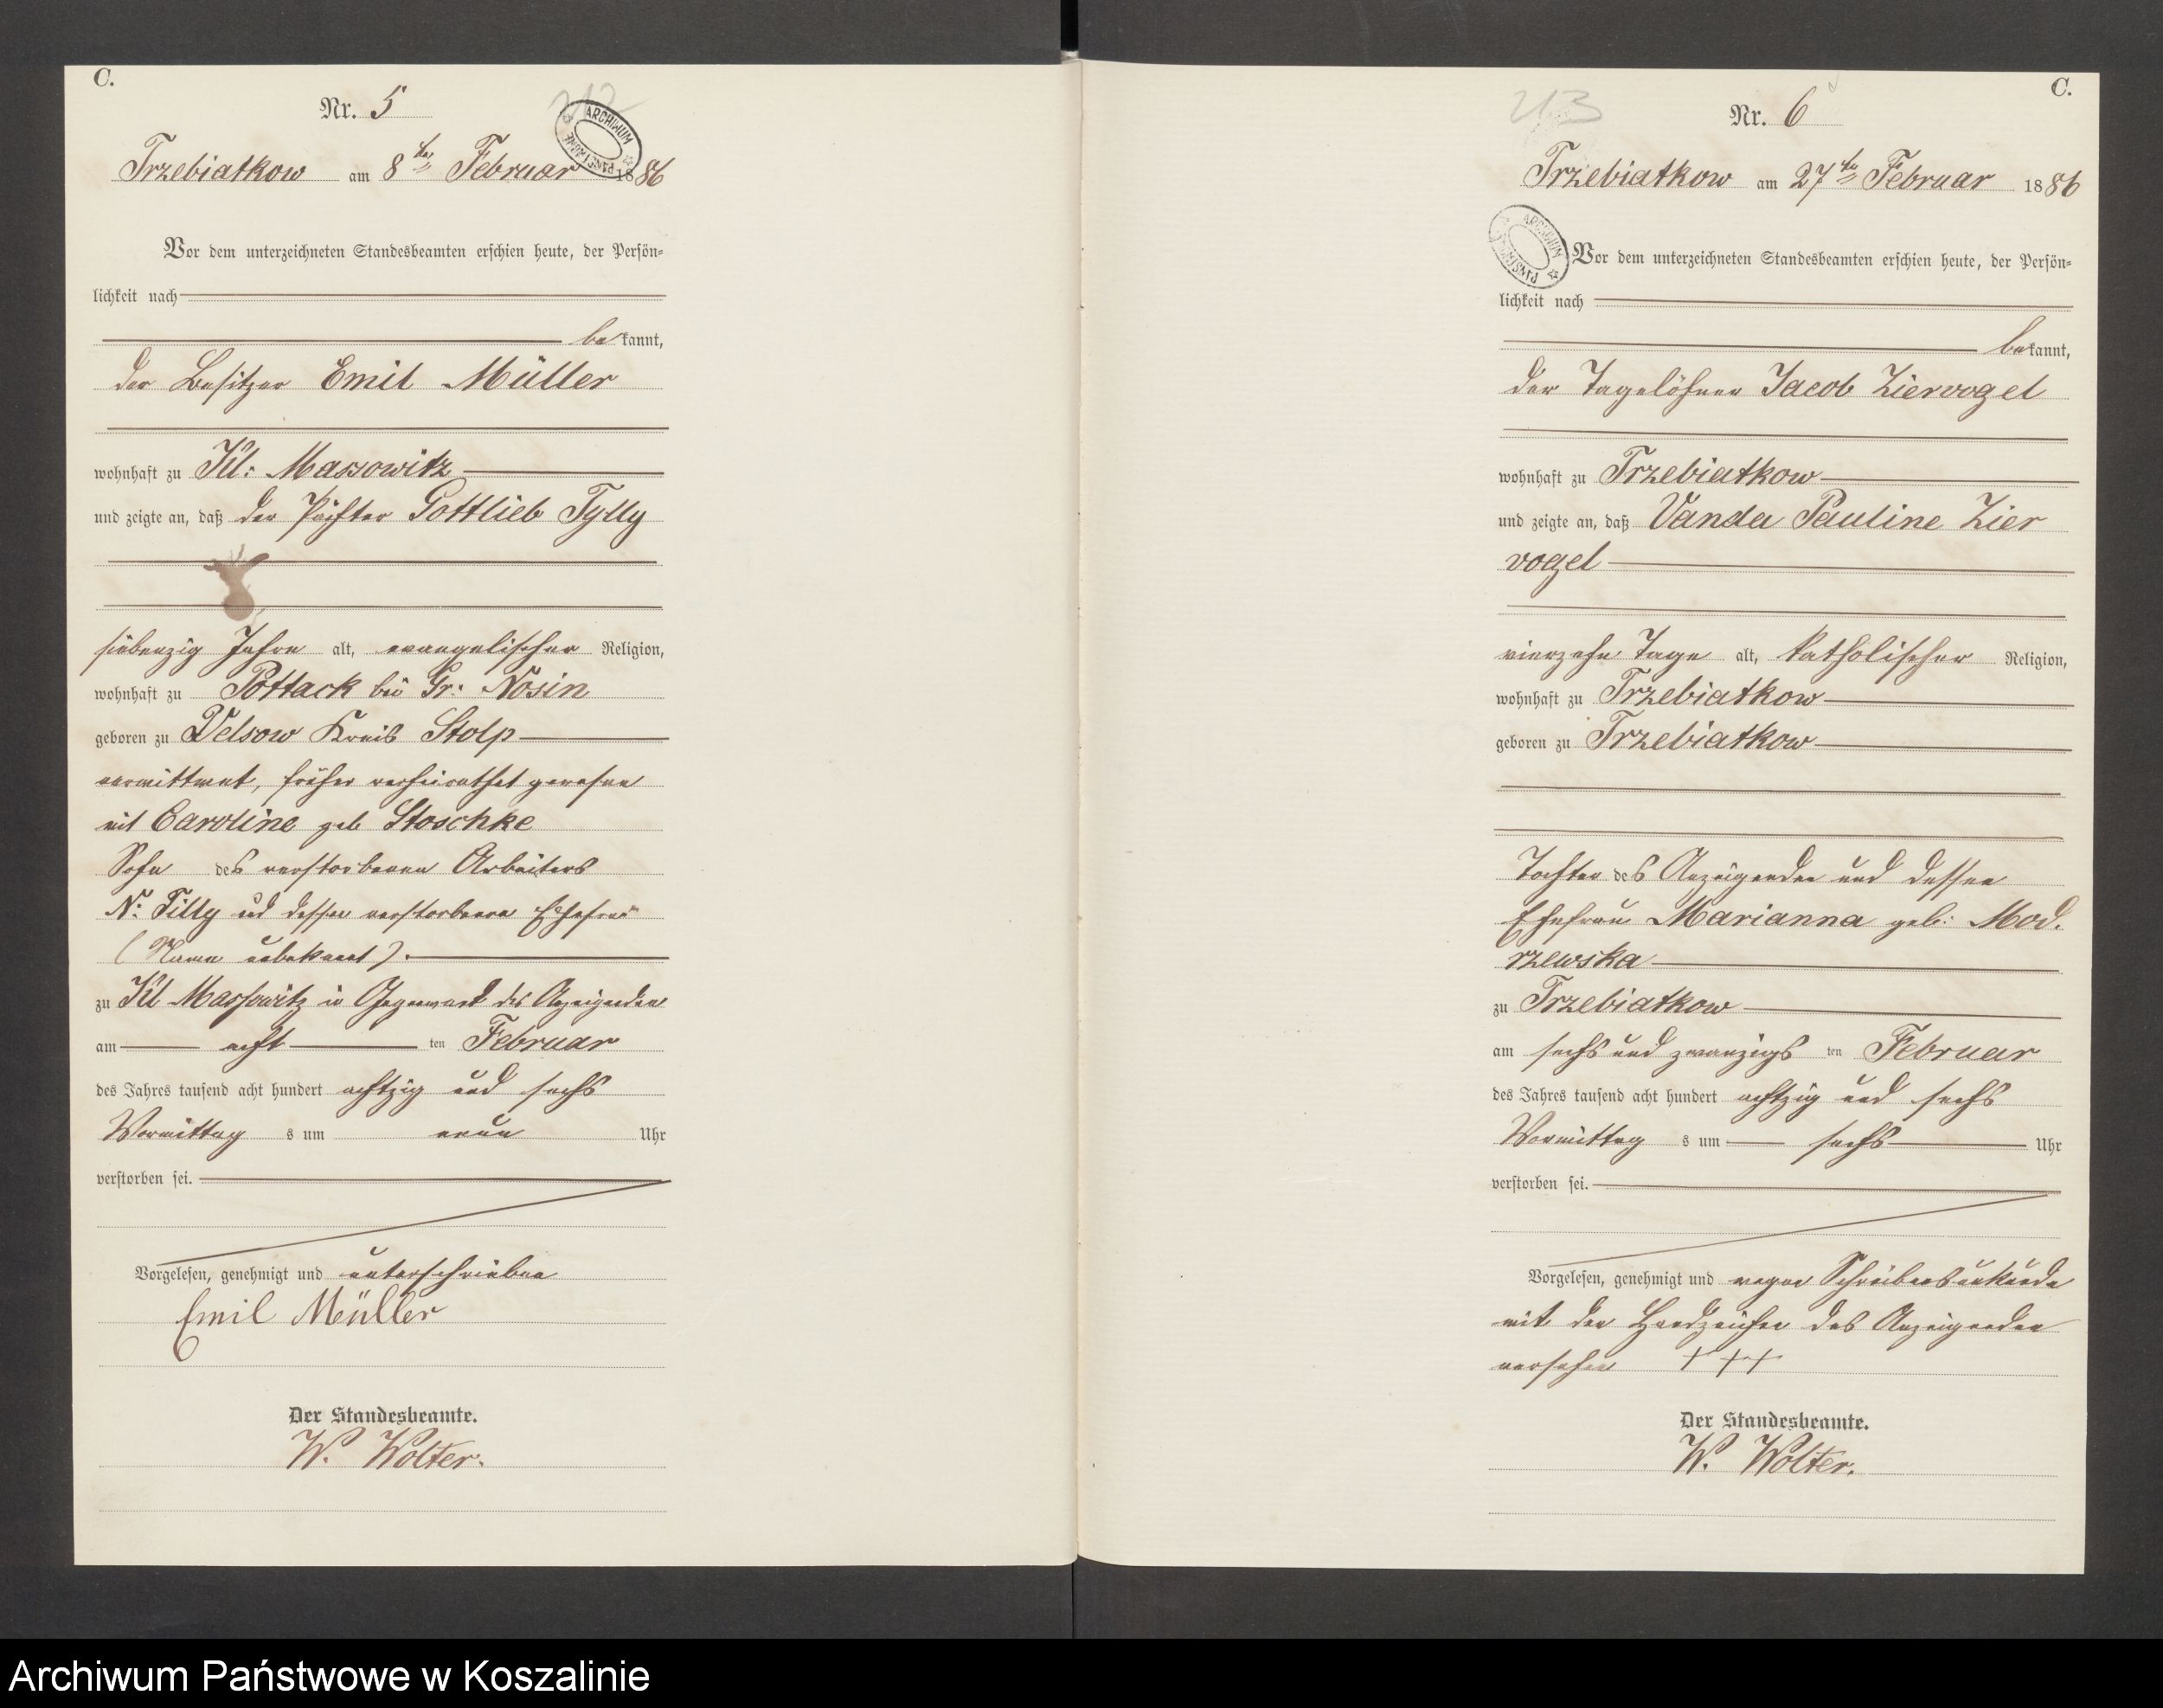 C.
Nr. 5
212
ARCHIWUM PAŃSTWOWE
Trzebiatkow am 8ten Februar 1886
Vor dem unterzeichneten Standesbeamten erschien heute, der Persön-
lichkeit nach
bekannt,
der Besitzer Emil Müller
wohnhaft zu Kl: Massowitz
und zeigte an, daß der Pächter Gottlieb Tylly
siebenzig Jahre alt, evangelischer Religion,
wohnhaft zu Pottack bei Gr: Nosin
geboren zu Velsow Kreis Stolp
verwittwet, früher verheirathet gewesen
mit Caroline geb Stoschke
Sohn des verstorbenen Arbeiters
N: Tilly und dessen verstorbenen Ehefrau
(Name unbekannt).
zu Kl Massowitz in Gegenwart des Anzeigenden
am acht ten Februar
des Jahres tausend acht hundert achtzig und sechs
Vormittag s um neun Uhr
verstorben sei.
Vorgelesen, genehmigt und unterschrieben
Emil Müller
Der Standesbeamte.
W. Wolter.
C.
213
Nr. 6
Trzebiatkow am 27ten Februar 1886
ARCHIWUM PAŃSTWOWE
Vor dem unterzeichneten Standesbeamten erschien heute, der Persön-
lichkeit nach
bekannt,
der Tagelöhner Jacob Ziervogel
wohnhaft zu Trzebiatkow
und zeigte an, daß Vanda Pauline Zier
vogel
vierzehn Tage alt, katholischer Religion,
wohnhaft zu Trzebiatkow
geboren zu Trzebiatkow
Tochter des Anzeigenden und dessen
Ehefrau Marianna geb: Mod.
rzewska
zu Trzebiatkow
am sechs und zwanzigs ten Februar
des Jahres tausend acht hundert achtzig und sechs
Vormittag s um sechs Uhr
verstorben sei.
Vorgelesen, genehmigt und wegen Schreibensunkunde
mit den Handzeichen des Anzeigenden
versehen +++
Der Standesbeamte.
W. Wolter.
Archiwum Państwowe w Koszalinie